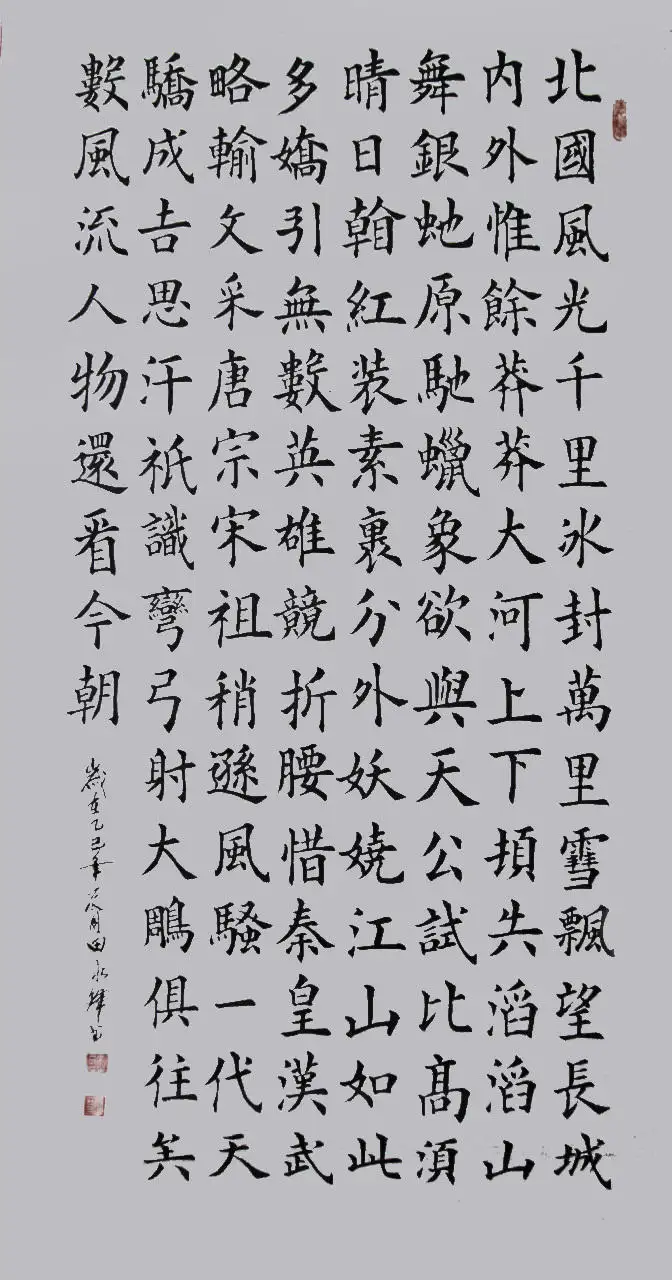 北國風光千里冰封萬里雪飄望長城
内外惟餘莽莽大河上下頓失滔滔山
舞銀虵原馳蠟象欲與天公試比高須
晴日看紅装素裹分外妖嬈江山如此
多嬌引無數英雄競折腰惜秦皇漢武
略輸文采唐宗宋祖稍遜風騷一代天
驕成吉思汗祇識彎弓射大鵰俱往矣
數風流人物還看今朝
歲在乙巳年月田永輝书